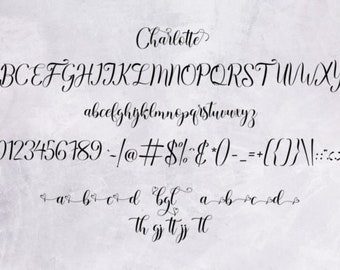 Charlotte
BCEFGHIJKLMNOPQRSTUVWXY
abcdefghijklmnopqrstuvwxyz
0123456789
a b c d bgl a b c d
th gj tt jj tl